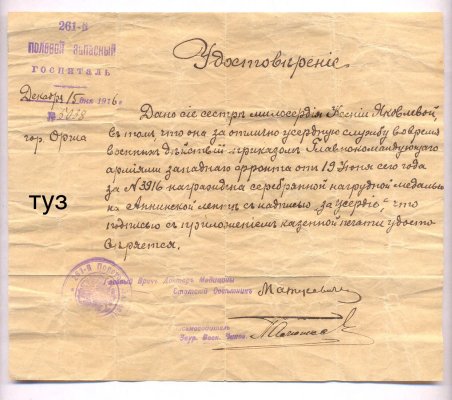 261-й
ПОЛЕВОЙ ЗАПАСНЫЙ
ГОСПИТАЛЬ
Декабря 15 дня 1916 г.
№
гор. Орша
Удостовѣреніе.
Дано сіе сестрѣ милосердія Ксеніи Яковлевой,
въ томъ что она за отлично усердную службу во время
военныхъ дѣйствій приказомъ Главнокомандующаго
арміями западнаго фронта отъ 19 Іюня сего года
за № 3916 награждена серебрянной нагрудной медалью
на Аннинской лентѣ съ надписью „за усердіе", что
подписью съ приложеніемъ казенной печати удосто-
вѣряется.
туз
261-й
Главный Врачъ Докторъ Медицины
Статскій Совѣтникъ
Дѣлопроизводитель
Заур. Воен. Чинов.